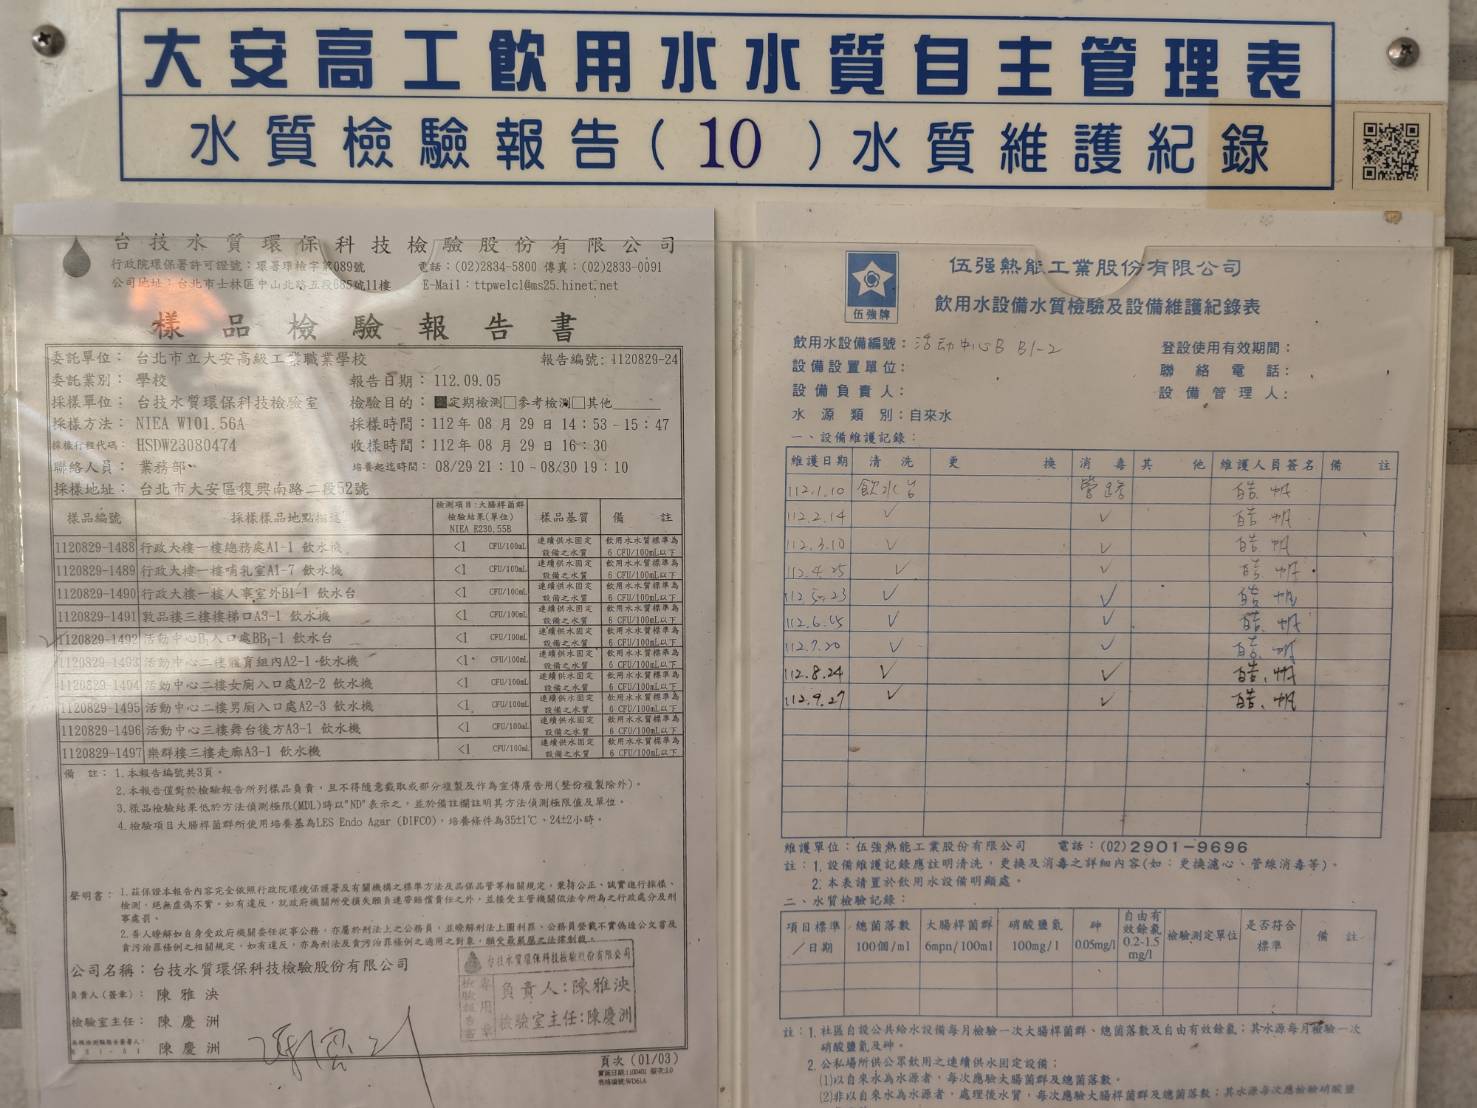 大安高工飲用水水質自主管理表
水質檢驗報告(10)水質維護紀錄
台技水質環保科技檢驗股份有限公司
行政院環保署許可證號：環署環檢字第089號 電話：(02)2834-5800 傳真：(02)2833-0091
公司地址：台北市士林區中山北路五段685號11樓 E-Mail：ttpwelcl@ms25.hinet.net
樣品檢驗報告書
委託單位： 台北市立大安高級工業職業學校 報告編號：1120829-24
委託業別： 學校 報告日期：112.09.05
採樣單位： 台技水質環保科技檢驗室 檢驗目的：■定期檢測□參考檢測□其他
採樣方法： NIEA W101.56A 採樣時間：112年 08 月 29 日 14：53-15：47
採樣行程代碼： HSDW23080474 收樣時間：112年 08 月 29 日 16：30
聯絡人員： 業務部 培養起迄時間：08/29 21：10-08/30 19：10
採樣地址： 台北市大安區復興南路二段52號
樣品編號 採樣樣品地點描述 檢測項目:大腸桿菌群 檢驗結果(單位) NIEA E230.55B 樣品基質 備 註
1120829-1488 行政大樓一樓總務處A1-1 飲水機 <1 CFU/100mL 連續供水固定設備之水質 飲用水水質標準為 6 CFU/100mL以下
1120829-1489 行政大樓一樓哺乳室A1-7 飲水機 <1 CFU/100mL 連續供水固定設備之水質 飲用水水質標準為 6 CFU/100mL以下
1120829-1490 行政大樓一樓人事室外B1-1 飲水台 <1 CFU/100mL 連續供水固定設備之水質 飲用水水質標準為 6 CFU/100mL以下
1120829-1491 敦品樓三樓樓梯口A3-1 飲水機 <1 CFU/100mL 連續供水固定設備之水質 飲用水水質標準為 6 CFU/100mL以下
1120829-1492 活動中心B1入口處BB1-1 飲水台 <1 CFU/100mL 連續供水固定設備之水質 飲用水水質標準為 6 CFU/100mL以下
1120829-1493 活動中心二樓體育組內A2-1 飲水機 <1 CFU/100mL 連續供水固定設備之水質 飲用水水質標準為 6 CFU/100mL以下
1120829-1494 活動中心二樓女廁入口處A2-2 飲水機 <1 CFU/100mL 連續供水固定設備之水質 飲用水水質標準為 6 CFU/100mL以下
1120829-1495 活動中心二樓男廁入口處A2-3 飲水機 <1 CFU/100mL 連續供水固定設備之水質 飲用水水質標準為 6 CFU/100mL以下
1120829-1496 活動中心三樓舞台後方A3-1 飲水機 <1 CFU/100mL 連續供水固定設備之水質 飲用水水質標準為 6 CFU/100mL以下
1120829-1497 樂群樓三樓走廊A3-1 飲水機 <1 CFU/100mL 連續供水固定設備之水質 飲用水水質標準為 6 CFU/100mL以下
備 註：1.本報告編號共3頁。
2.本報告僅對於檢驗報告所列樣品負責，且不得隨意截取或部分複製及作為宣傳廣告用(整份複製除外)。
3.樣品檢驗結果低於方法偵測極限(MDL)時以"ND"表示之，並於備註欄註明其方法偵測極限值及單位。
4.檢驗項目大腸桿菌群所使用培養基為LES Endo Agar (DIFCO)，培養條件為35±1℃、24±2小時。
聲明書：1.茲保證本報告內容完全依照行政院環境保護署及有關機構之標準方法及品保品管等相關規定，秉持公正、誠實進行採樣、
檢測，絕無虛偽不實，如有違反，就政府機關所受損失願負連帶賠償責任之外，並接受主管機關依法令所為之行政處分及刑
事處罰。
2.吾人瞭解如自身受政府機關委任從事公務，亦屬於刑法上之公務員，並瞭解刑法上圖利罪、公務員登載不實偽造公文書及
貪污治罪條例之相關規定，如有違反，亦為刑法及貪污治罪條例之適用之對象，願受最嚴厲之法律制裁。
公司名稱：台技水質環保科技檢驗股份有限公司
負責人(簽章)： 陳雅泱
檢驗室主任： 陳慶洲
陳慶洲
台技水質環保科技檢驗股份有限公司
檢驗報告書專用章
負責人：陳雅泱
檢驗室主任：陳慶洲
頁次 (01/03)
伍強牌
伍强熱能工業股份有限公司
飲用水設備水質檢驗及設備維護紀錄表
飲用水設備編號：活動中心B B1-2 登設使用有效期間：
設備設置單位： 聯絡電話：
設備負責人： 設備管理人：
水源類別：自來水
一、設備維護記錄：
維護日期 清 洗 更 換 消 毒 其 他 維護人員簽名 備 註
112.1.10 飲水台 管路
112.2.14 ✓ ✓
112.3.10 ✓ ✓
112.4.25 ✓ ✓
112.5.23 ✓ ✓
112.6.15 ✓ ✓
112.7.20 ✓ ✓
112.8.24 ✓ ✓
112.9.27 ✓ ✓
維護單位：伍強熱能工業股份有限公司 電話：(02)2901-9696
註：1.設備維護記錄應註明清洗，更換及消毒之詳細內容(如：更換濾心、管線消毒等)。
2.本表請置於飲用水設備明顯處。
二、水質檢驗記錄：
項目標準／日期 總菌落數 100個/ml 大腸桿菌群 6mpn/100ml 硝酸鹽氮 100mg/l 砷 0.05mg/l 自由有效餘氯 0.2-1.5 mg/l 檢驗測定單位 是否符合標準 備 註
註：1.社區自設公共給水設備每月檢驗一次大腸桿菌群、總菌落數及自由有效餘氯；其水源每月檢驗一次
硝酸鹽氮及砷。
2.公私場所供公眾飲用之連續供水固定設備：
(1)以自來水為水源者，每次應驗大腸菌群及總菌落數。
(2)非以自來水為水源者，處理後水質，每次應驗大腸桿菌群及總菌落數；其水源每次應檢驗硝酸鹽